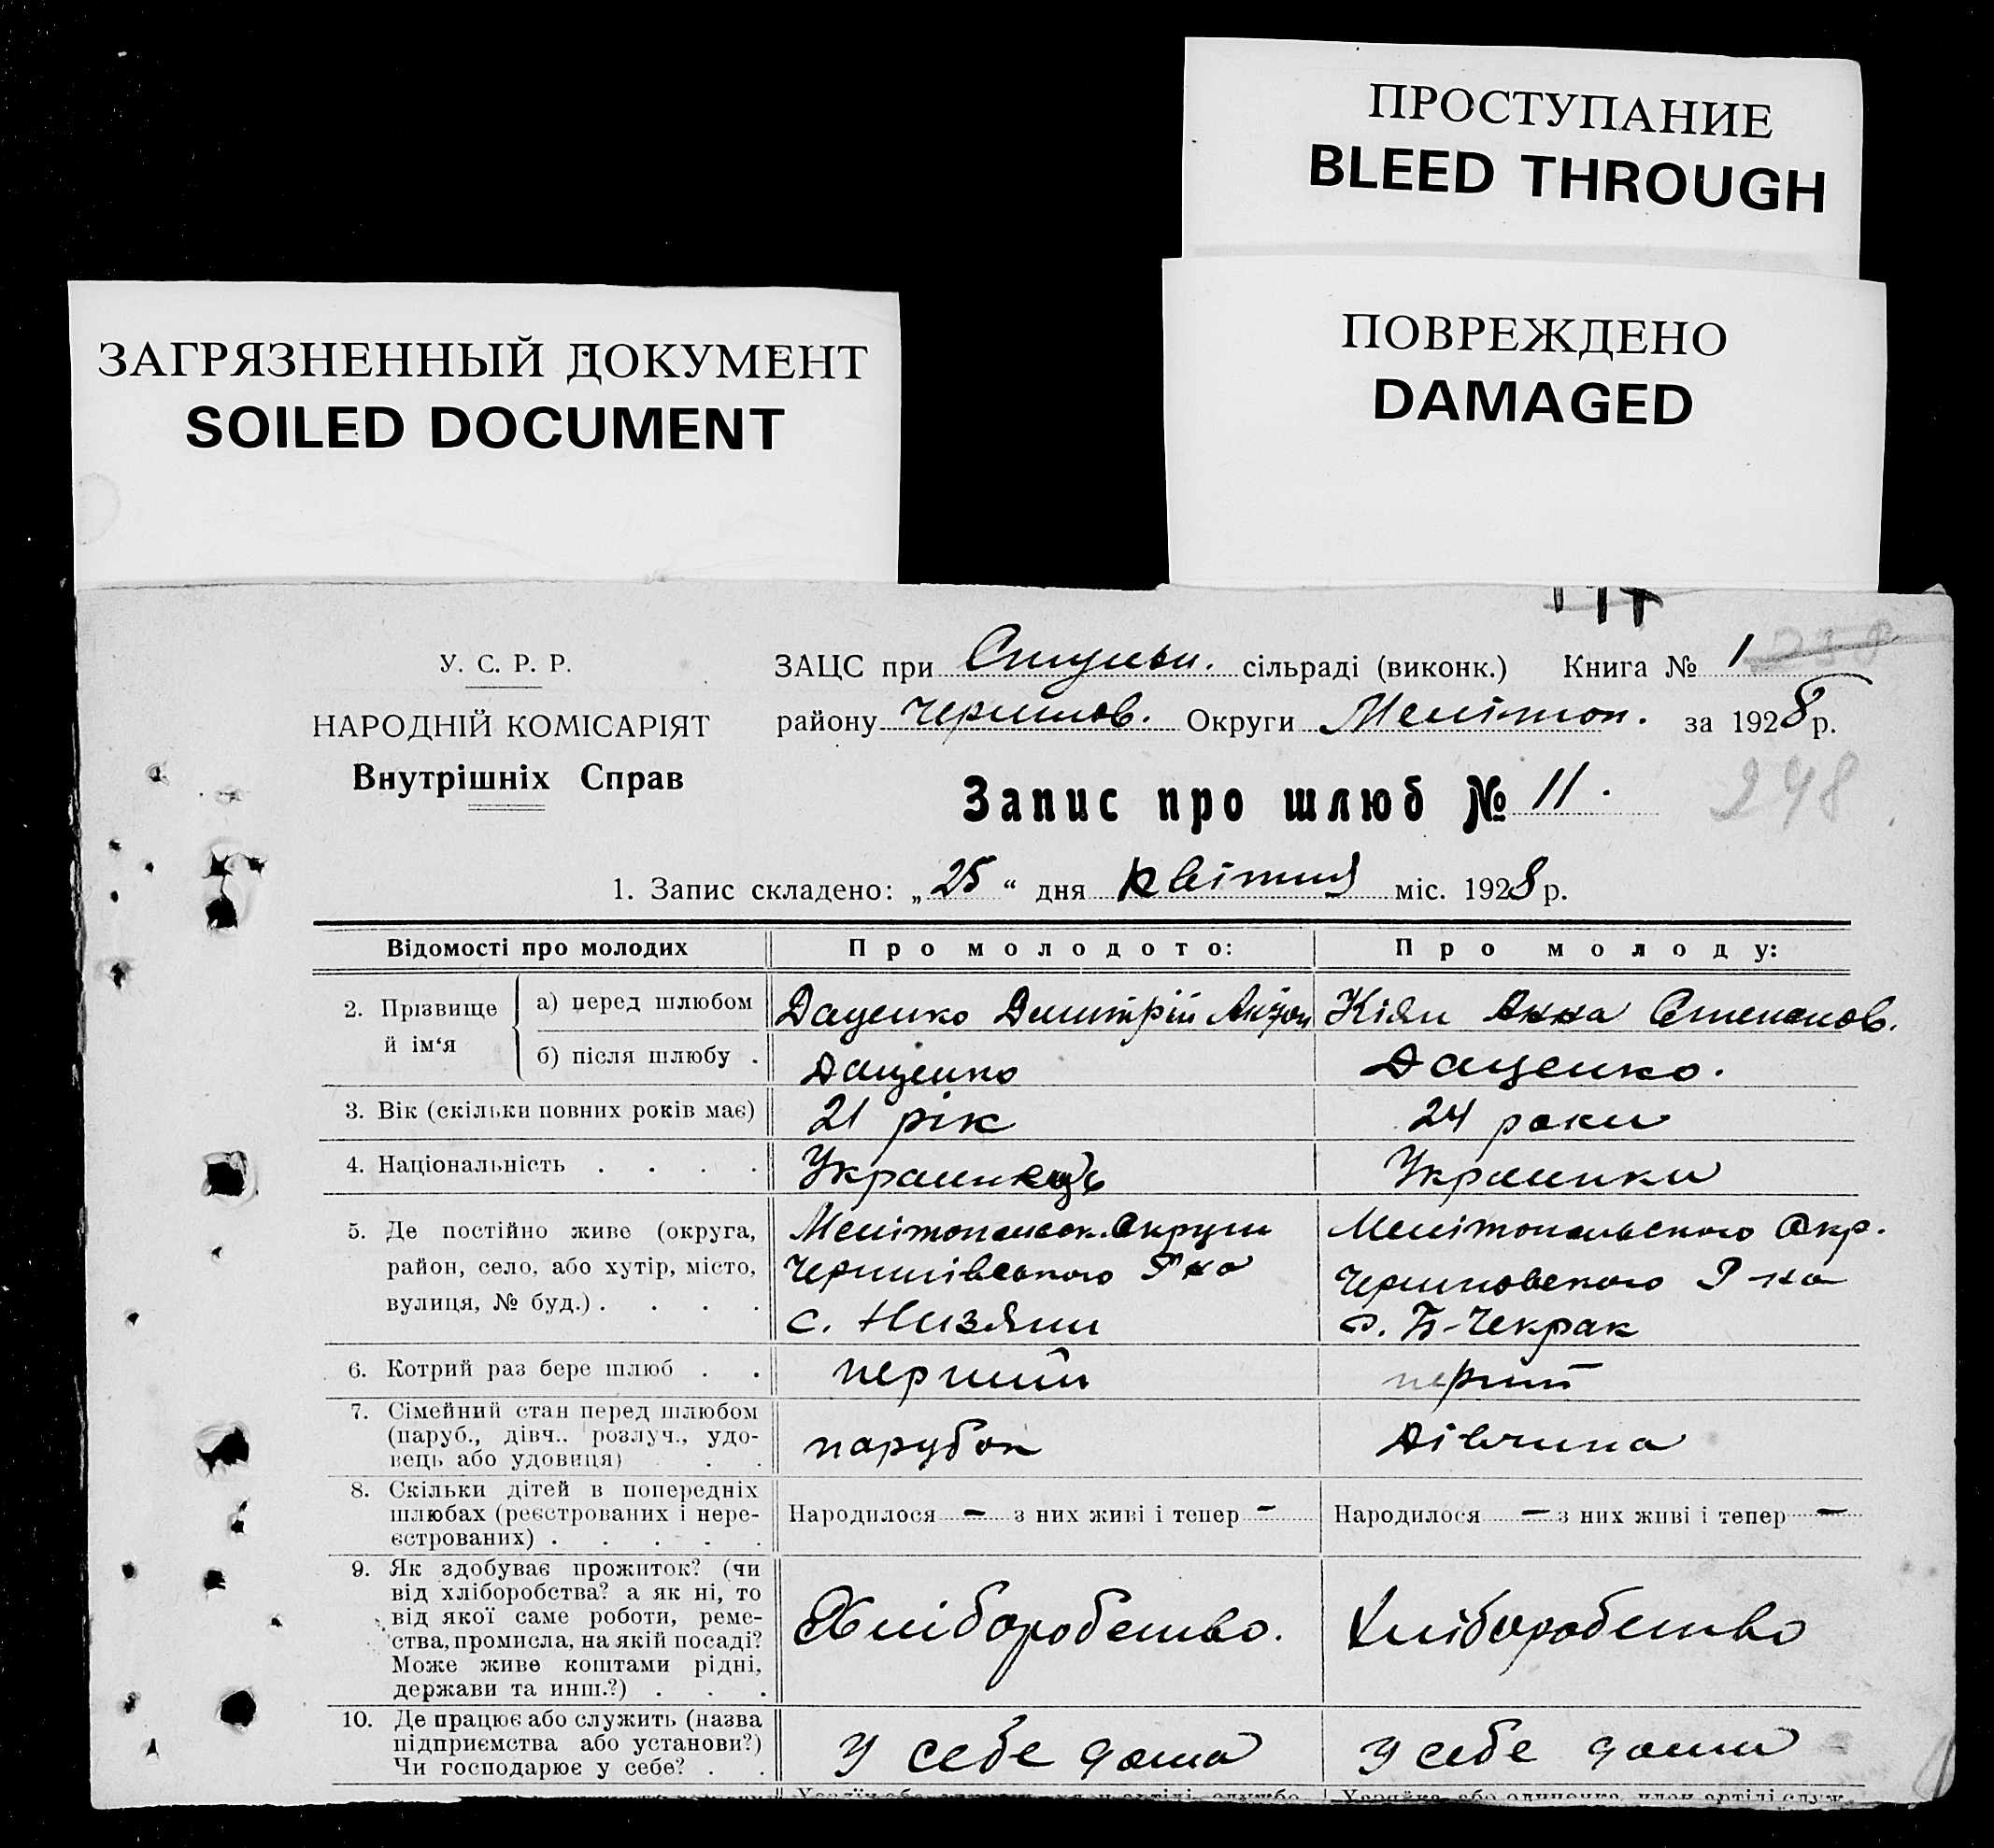 ПРОСТУПАНИЕ
BLEED THROUGH
ЗАГРЯЗНЕННЫЙ ДОКУМЕНТ
SOILED DOCUMENT
ПОВРЕЖДЕНО
DAMAGED
У. С. Р. Р.
НАРОДНІЙ КОМІСАРІЯТ
Внутрішніх Справ
ЗАЦС при сільраді (виконк.) Книга № 1
району Округи Мелітоп. за 1928 р.
Запис про шлюб № 11.
248
1. Запис складено: „25“ дня квітня міс. 1928 р.
Відомості про молодих
Про молодого:
Про молоду:
2. Прізвище й ім‘я
а) перед шлюбом
Даценко Димитрій
Кіян Анна Степанов.
б) після шлюбу .
Даценко
Даценко.
3. Вік (скільки повних років має)
21 рік
24 роки
4. Національність . . . .
Украинець
Украинка
5. Де постійно живе (округа,
район, село, або хутір, місто,
вулиця, № буд.) . . . .
Округи
Р-на
с. Низяни
Мелітопольского Окр.
Р-на
с. Б-Чекрак
6. Котрий раз бере шлюб . .
перший
перший
7. Сімейний стан перед шлюбом
(паруб., дівч., розлуч., удо-
вець або удовиця) . .
парубок
дівчина
8. Скільки дітей в попередніх
шлюбах (реєстрованих і нере-
єстрованих) . . . . .
Народилося – з них живі і тепер –
Народилося – з них живі і тепер –
9. Як здобуває прожиток? (чи
від хліборобства? а як ні, то
від якої саме роботи, реме-
ства, промисла, на якій посаді?
Може живе коштами рідні,
держави та инш.?) . . .
Хліборобство.
Хліборобство
10. Де працює або служить (назва
підприємства або установи?)
Чи господарює у себе? . .
У себе дома
У себе дома